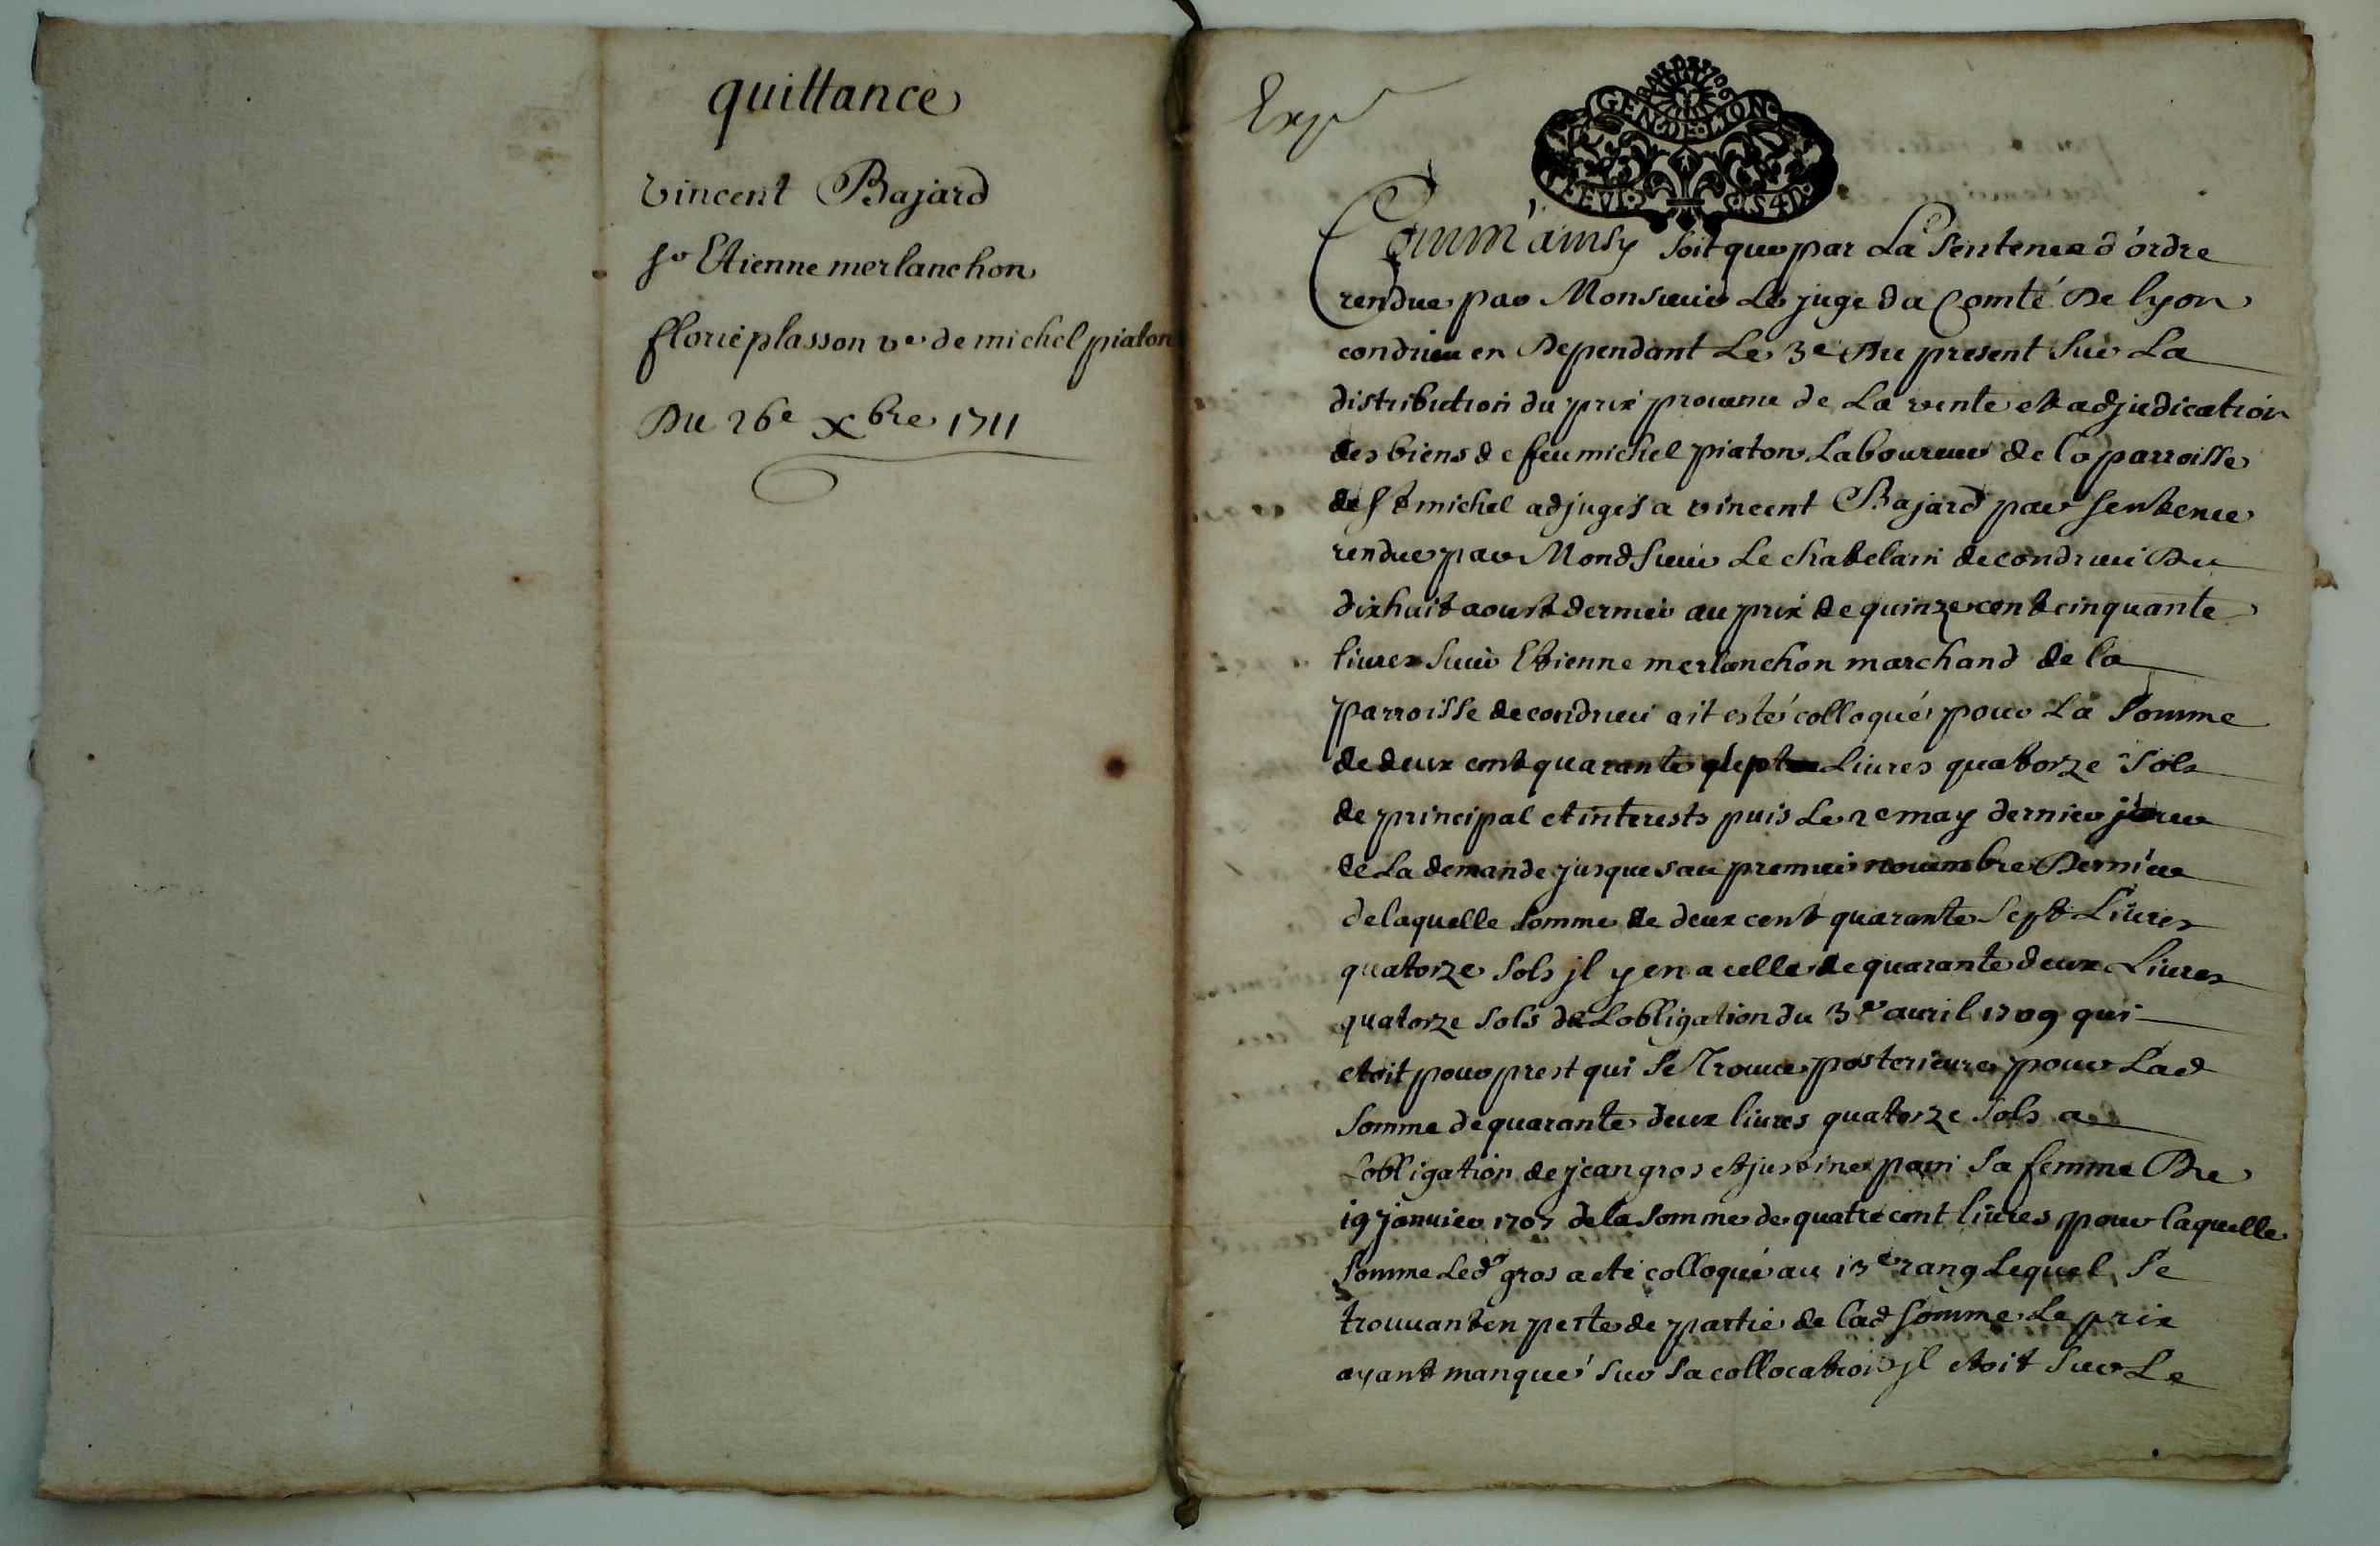 quittance
Vincent Bajard
Sr Etienne merlanchon
florie plasson ve de michel piaton
Du 26e Xbre 1711
Exp
GEN DE LION
Comm' ainsy soit que par La Sentence d'ordre
rendue par Monsieur Le juge da Comté De lyon
condrieu en Dependant Le 3e Du present Sur La
distribution du prix prouenu de La vente et adjudication
des biens de feu michel piaton Laboureur de la parroisse
de St michel adjugés a vincent Bajard par Sentence
rendue par Mond Sieur Le chatelain de condrieu Du
dixhuit aoust dernier au prix de quinze cent cinquante
liures Sieur Etienne merlanchon marchand de la
parroisse de condrieu ait esté colloqué pour La Somme
de deux cent quarante sept Liures quatorze Sols
de principal et interests puis Le 2e may dernier jour
de La demande jusques au premier nouembre Dernier
de laquelle Somme de deux cent quarante Sept Liures
quatorze Sols jl y en a celle de quarante deux Liures
quatorze Sols de Lobligation du 3e auril 1709 qui
etoit pour prest qui Se Trouue posterieure pour Lad
Somme de quarante deux liures quatorze Sols a
Lobligation de jean gros et justine pari Sa femme Du
19 januier 1707 de la Somme de quatre cent liures pour laquelle
Somme Led gros a eté colloqué au 13e rang Lequel Se
trouuant en perte de partie de lad Somme Le prix
ayant manqué Sur Sa collocation jl etoit Sur Le